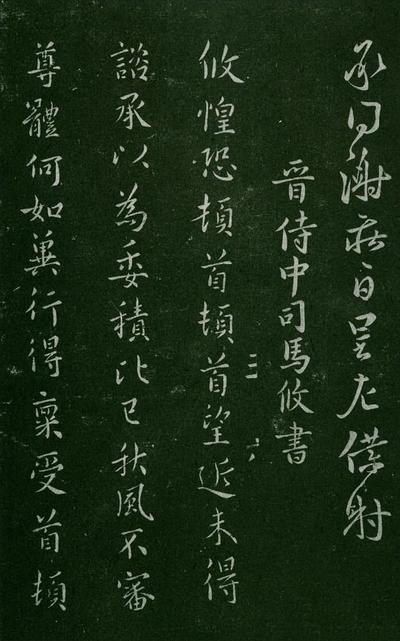 承问谢莊白呈左僕射
晉侍中司馬攸書
攸惶恐頓首頓首望近未得
諮承以為委積比已秋風不審
尊體何如冀行得稟受首頓
二 十六